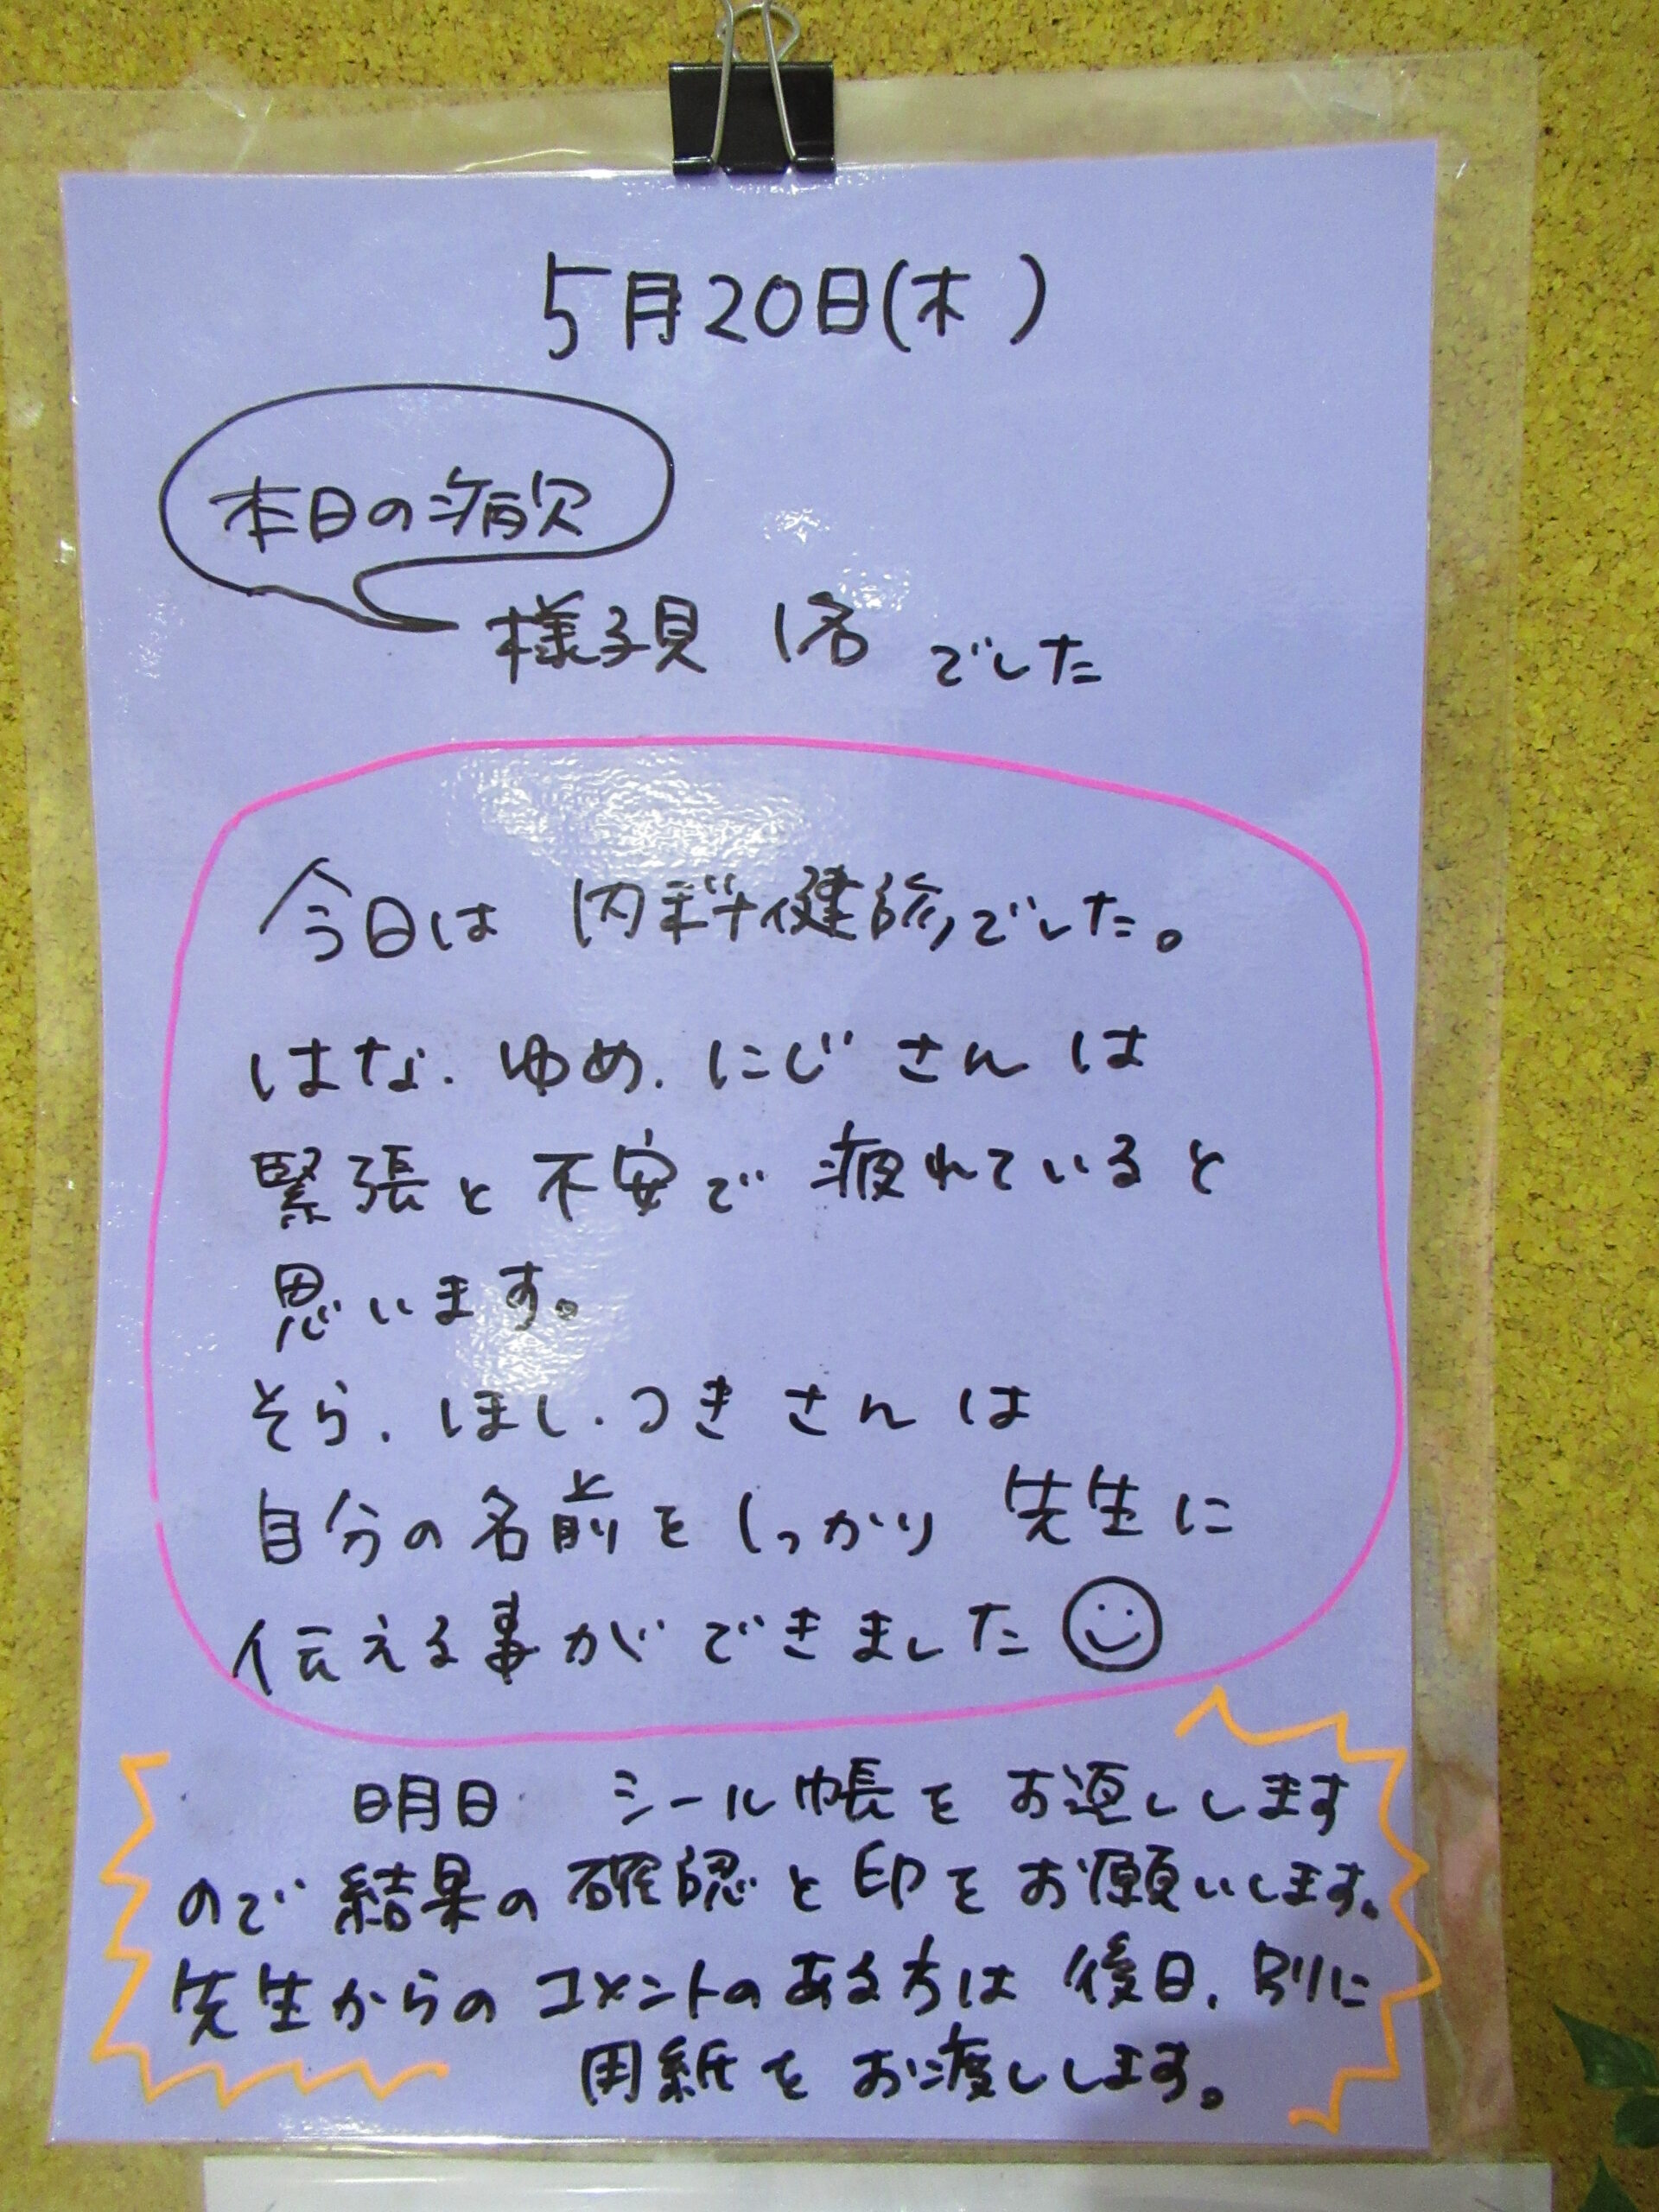 5月20日(木)
本日の病欠
様子見 1名 でした
今日は 内科健診でした。
はな、ゆめ、にじ さん は
緊張と不安で 疲れていると
思います。
そら、ほし、つき さん は
自分の名前をしっかり 先生に
伝える事ができました
明日 シール帳をお返しします
ので結果の確認と印をお願いします。
先生からのコメントのある方は 後日、別に
用紙をお渡しします。